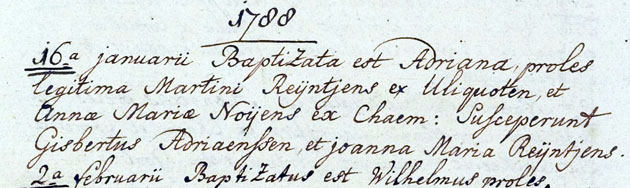 1788
16.a januarii Baptizata est Adriana, proles
legitima Martini Reÿntjens ex Uliquoten, et
Annæ Mariæ Noÿens ex Chaem: Susceperunt
Gisbertus Adriaenssen, et joanna Maria Reÿntjens.
2.a februarii Baptizatus est Wilhelmus proles.